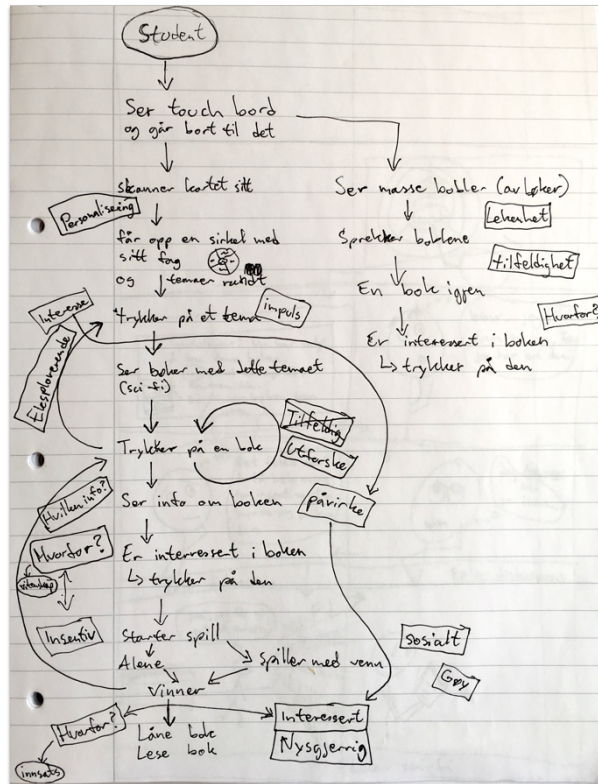 Student
Ser touch bord
og går bort til det
skanner kortet sitt
Personalisering
får opp en sirkel med
sitt fag
og temaer rundt
Interesse
trykker på et tema
impuls
Eksplorerende
Ser bøker med dette temaet
(sci-fi)
Tilfeldig
Trykker på en bok
Utforske
Hvilken info?
Ser info om boken
påvirke
Hvorfor?
Er interressert i boken
↳ trykker på den
vitenskap
Insentiv
Starter spill
Alene
Spiller med venn
Vinner
sosialt
Gøy
Hvorfor?
innsats
Låne bok
Lese bok
Interessert
Nysgjerrig
Ser masse bobler (av bøker)
Lekenhet
Sprekker boblene
tilfeldighet
En bok igjen
Hvorfor?
Er interessert i boken
↳ trykker på den